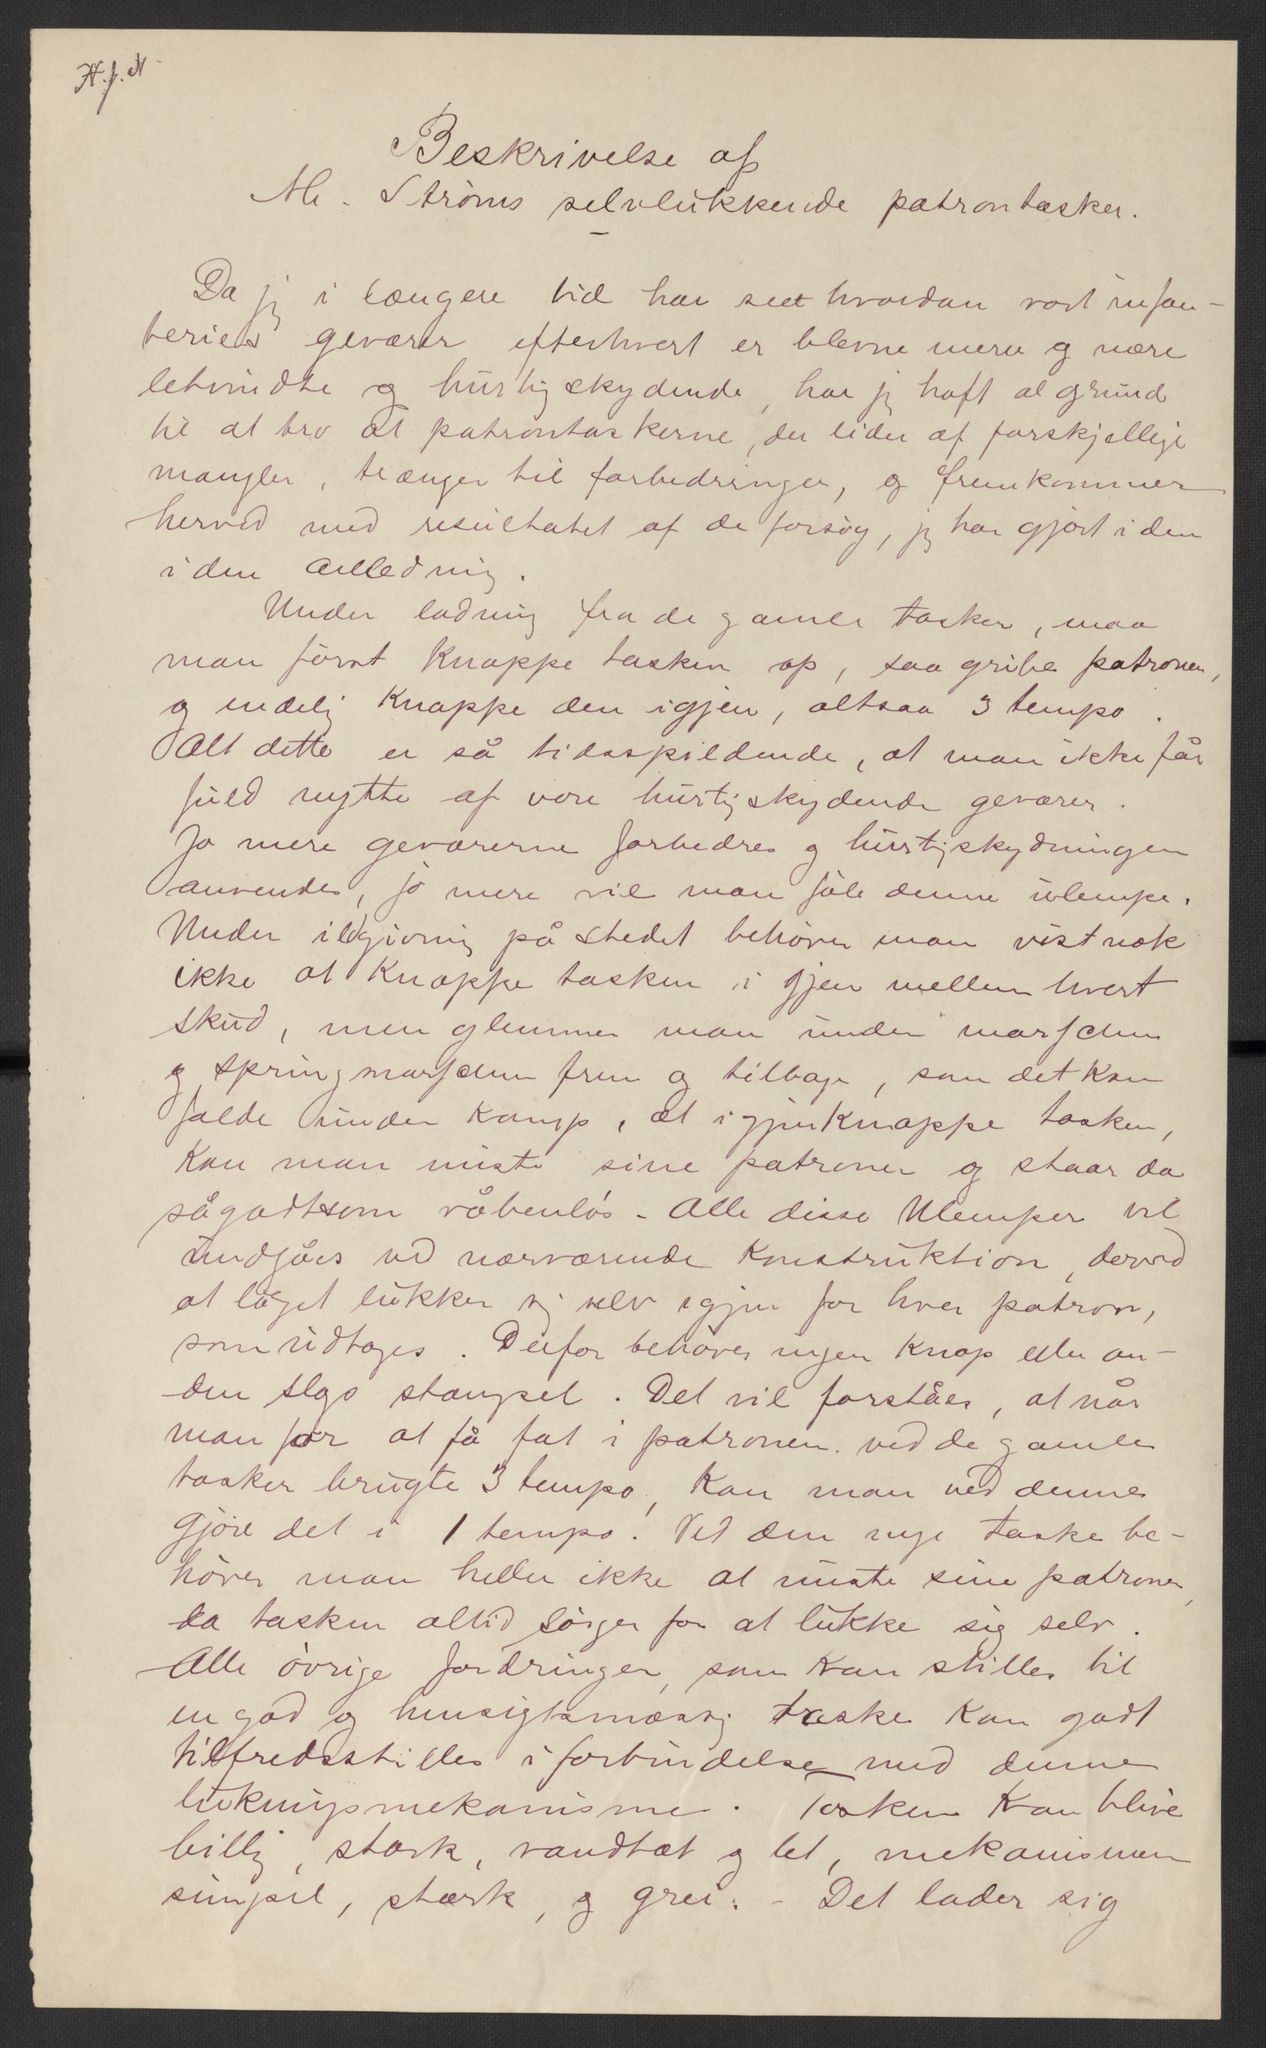 H. J. N.
Beskrivelse af
M. Strøms selvlukkende patrontasker.
Da jeg i længere tid har seet hvordan vort infan-
teries geværer efterhvert er blevne mere og mere
letvindte og hurtigskydende, har jeg haft al grund
til at tro at patrontaskerne, der lider af forskjellige
mangler, trænger til forbedringer, og fremkommer
herved med resultatet af de forsøg, jeg har gjort i den
i den anledning.
Under ladning fra de gamle tasker, maa
man først knappe tasken op, saa gribe patronen,
og endelig knappe den igjen, altsaa 3 tempo.
Alt dette er så tidsspildende, at man ikke får
fuld nytte af vore hurtigskydende geværer.
Jo mere geværerne forbedres og hurtigskydningen
anvendes, jo mere vil man føle denne ulempe.
Under ildgivning på stedet behøver man vistnok
ikke at knappe tasken i gjen mellem hvert
skud, men glemmer man under marschen
og springmarschen frem og tilbage, som det kan
falde under kamp, at igjenknappe tasken,
kan man miste sine patroner og staar da
sågodtsom våbenløs. Alle disse Ulemper vil
undgåes ved nærværende konstruktion, derved
at låget lukker sig selv igjen for hver patron,
som udtages. Derfor behøves ingen knap eller an-
den slgs stængsel. Det vil forståes, at når
man før at få fat i patronen ved de gamle
tasker brugte 3 tempo, kan man ved denne
gjøre det i 1 tempo. Ved den nye taske be-
høver man heller ikke at miste sine patroner,
da tasken altid sørger for at lukke sig selv.
Alle øvrige fordringer, som kan stilles til
en god og hensigtsmæssig taske kan godt
tilfredsstilles i forbindelse med denne
lukningsmekanisme. Tasken kan blive
billig, stærk, vandtæt og let, mekanismen
simpel, stærk, og grei. - Det lader sig